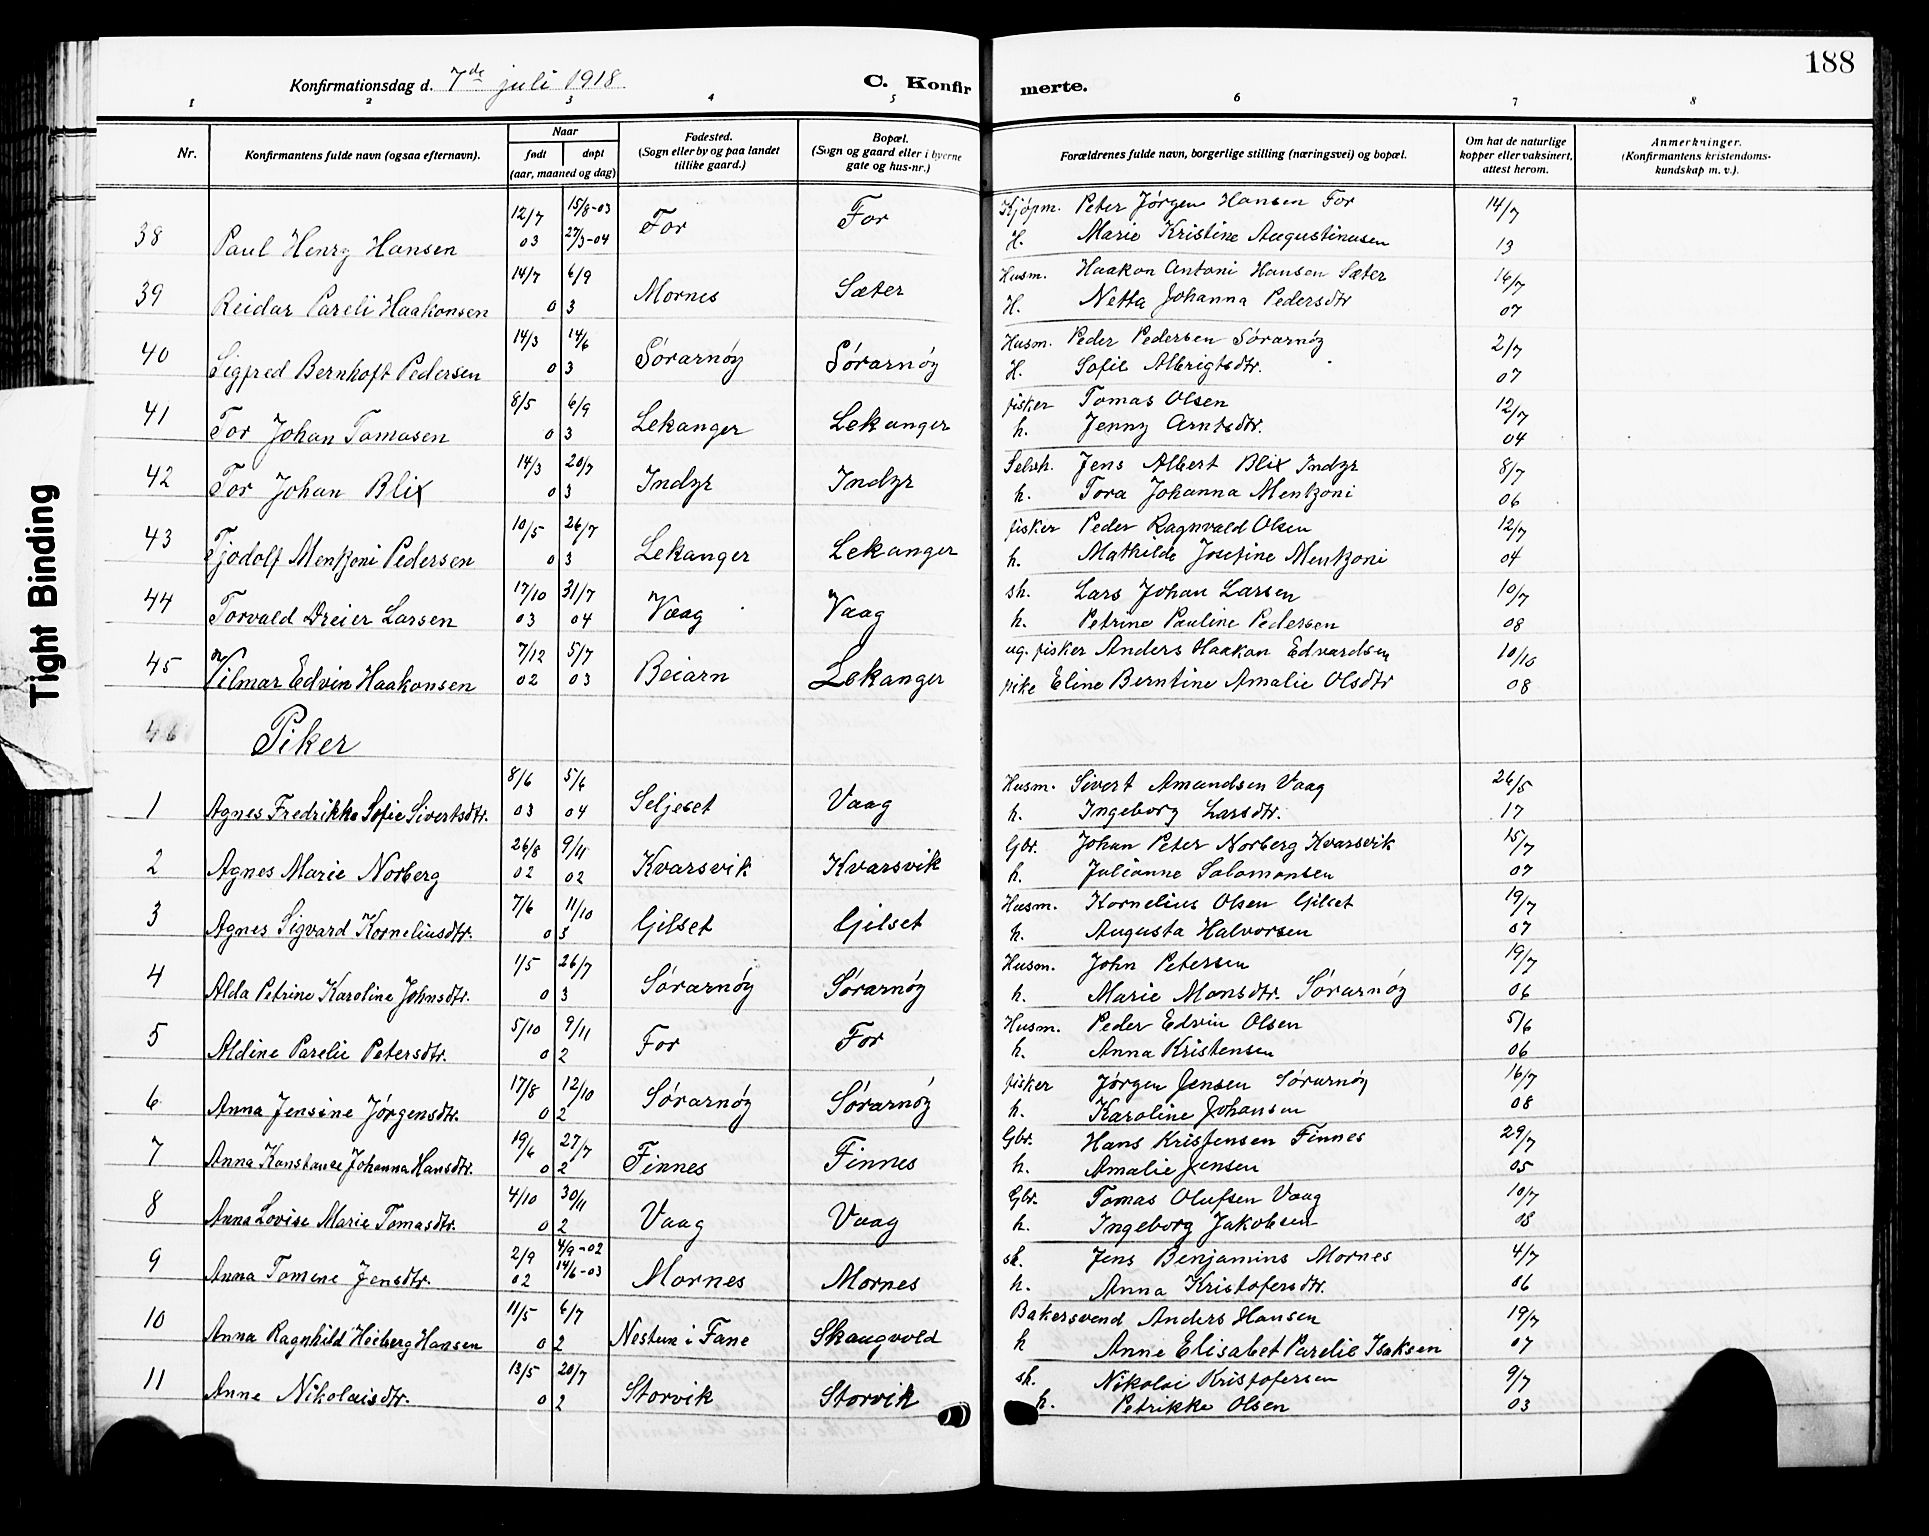 188
Konfirmationsdag d. 7de juli 1918
C. Konfirmerte.
1 2 3 4 5 6 7 8
Nr. Konfirmantens fulde navn (ogsaa efternavn). Naar født døpt (aar, maaned og dag) Fødested. (Sogn eller by og paa landet tillike gaard.) Bopæl. (Sogn og gaard eller i byerne gate og hus-nr.) Forældrenes fulde navn, borgerlige stilling (næringsvei) og bopæl. Om hat de naturlige kopper eller vaksinert, attest herom. Anmerkninger. (Konfirmantens kristendoms-kundskap m. v.).
38 Paul Henry Hansen 12/7 03 15/8-03 27/3-04 For For Kjøpm. Peter Jørgen Hansen For 14/7
H. Marie Kristine Augustinusen 13
39 Reidar Pareli Haakonsen 14/7 6/9 03 Mornes Sæter Husm. Haakon Antoni Hansen Sæter 16/7
H. Netta Johanna Pedersdtr 07
40 Sigfred Bernhoft Pedersen 14/3 14/6 03 Sørarnøy Sørarnøy Husm. Peder Pedersen Sørarnøy 2/7
H. Sofie Albrigtsdtr. 07
41 Tor Johan Tomasen 8/5 6/9 03 Lekanger Lekanger fisker Tomas Olsen 12/7
h. Jenny Arntsdtr. 04
42 Tor Johan Blix 14/3 20/7 03 Indyr Indyr Selvh. Jens Albert Blix Indyr 8/7
h. Tora Johanna Mentzoni 06
43 Tjodolf Mentzoni Pedersen 10/5 26/7 03 Lekanger Lekanger fisker Peder Ragnvald Olsen 12/7
h. Mathilde Josefine Mentzoni 04
44 Torvald Dreier Larsen 17/10 03 31/7 04 Vaag Vaag sh. Lars Johan Larsen 10/7
h. Petrine Pauline Pedersen 08
45 Vilmar Edvin Haakonsen 7/12 02 5/7 03 Beiarn Lekanger ug. fisker Anders Haakon Edvardsen 10/10
pike Eline Berntine Amalie Olsdtr 08
46 Piker
1 Agnes Fredrikke Sofie Sivertsdtr. 8/6 03 5/6 04 Seljeset Vaag Husm. Sivert Amundsen Vaag 26/5
h. Ingeborg Larsdtr. 17
2 Agnes Marie Norberg 26/8 02 9/11 02 Kvarsvik Kvarsvik Gbr. Johan Peter Norberg Kvarsvik 15/7
h. Julianne Salomonsen 07
3 Agnes Sigvard Korneliusdtr. 7/6 11/10 03 Gilset Gilset Husm. Kornelius Olsen Gilset 19/7
h. Augusta Halvorsen 07
4 Alda Petrine Karoline Johnsdtr. 1/5 26/7 03 Sørarnøy Sørarnøy Husm. John Petersen 19/7
h. Marie Monsdtr. Sørarnøy 06
5 Aldine Parelie Petersdtr. 5/10 9/11 02 For For Husm. Peder Edvin Olsen 5/6
h. Anna Kristensen 06
6 Anna Jensine Jørgensdtr. 17/8 12/10 02 Sørarnøy Sørarnøy fisker Jørgen Jensen Sørarnøy 16/7
h. Karoline Johansen 08
7 Anna Konstance Johanna Hansdtr. 19/6 27/7 02 Finnes Finnes Gbr. Hans Kristensen Finnes 29/7
h. Amalie Jensen 05
8 Anna Lovise Marie Tomasdtr. 4/10 30/11 02 Vaag Vaag Gbr. Tomas Olufsen Vaag 10/7
h. Ingeborg Jakobsen 08
9 Anna Tomine Jensdtr. 2/9 02 4/9-02 14/6-03 Mornes Mornes sh. Jens Benjamins Mornes 4/7
h. Anna Kristofersdtr. 06
10 Anna Ragnhild Heiberg Hansen 11/5 6/7 02 Nestun i Fane Skaugvold Bakersvend Anders Hansen 19/7
h Anne Elisabet Parelie Isaksen 07
11 Anne Nikolaisdtr. 13/5 20/7 02 Storvik Storvik sh. Nikolai Kristofersen 9/7
h. Petrikke Olsen 03
Tight Binding